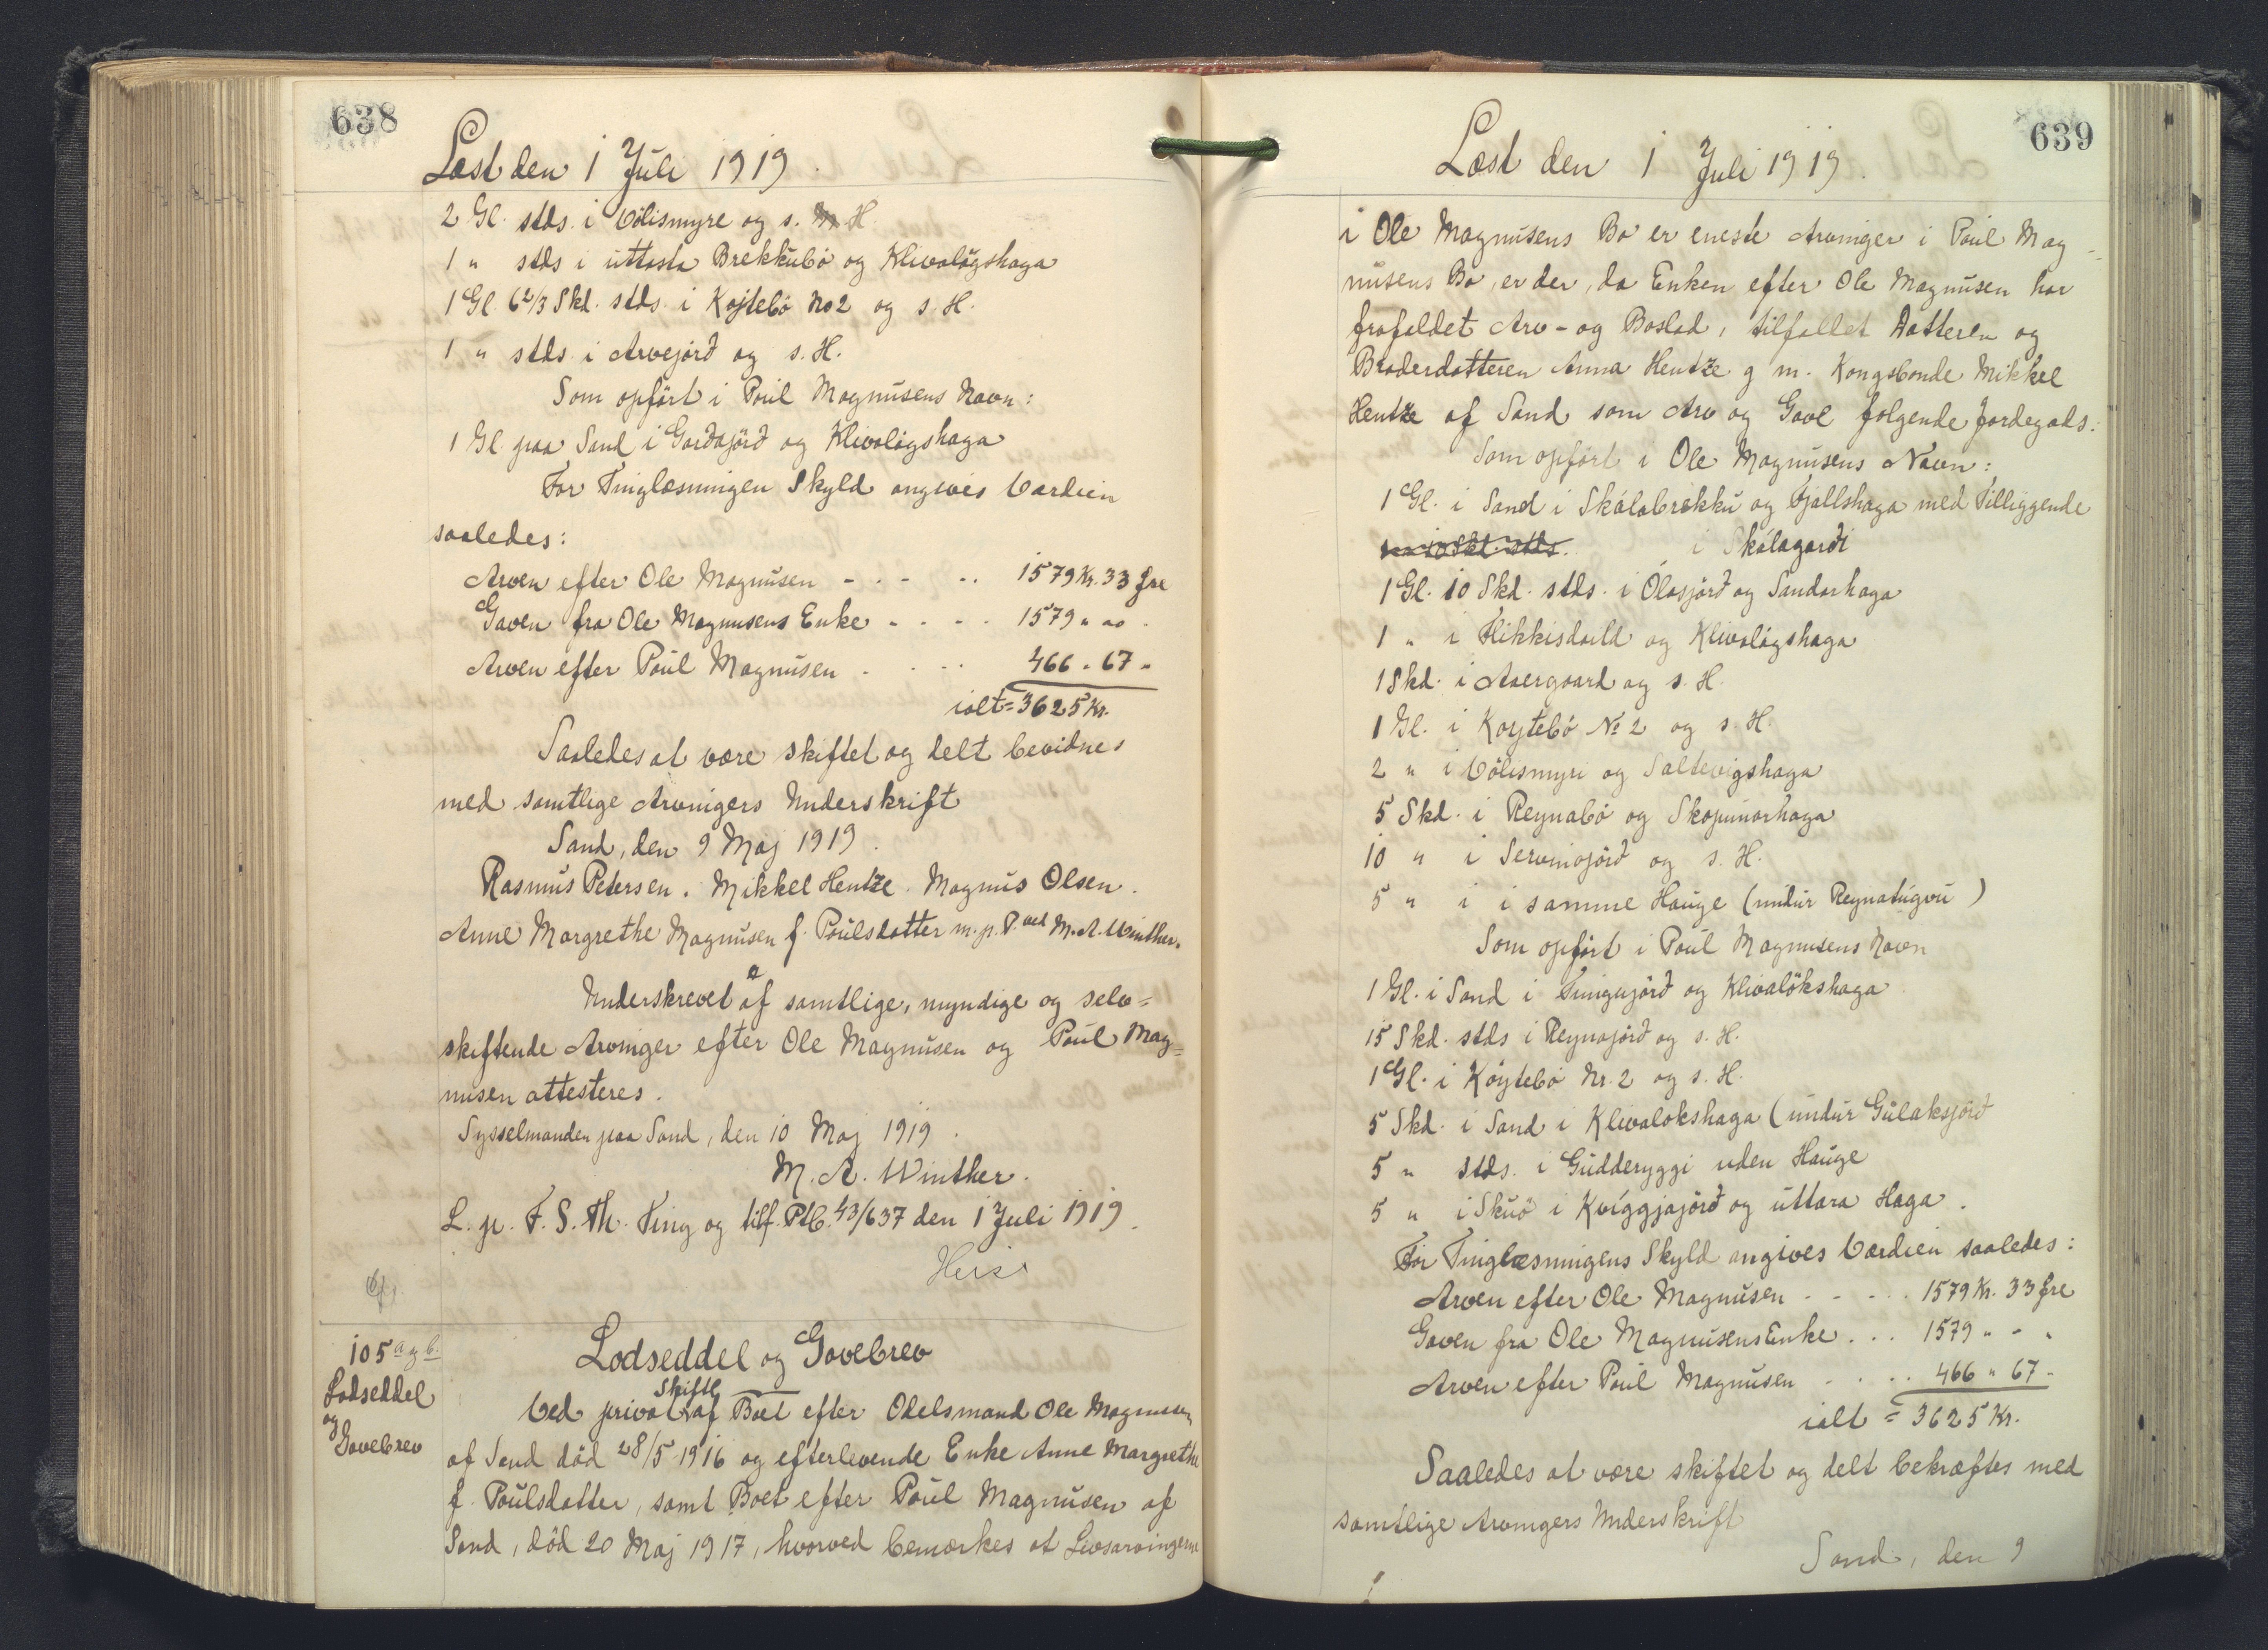 638
Læst den 1 Juli 1919.
2 Gl. stds. i Vølismyre og s. H
1 " stds i úttasta Brekkubø og Klivaløgshaga
1 Gl. 6 2/3 Skd. stds. i Køjtebø No 2 og s. H.
1 " stds i Arvejørð og s. H.
Som opført i Poul Magnusens Navn:
1 Gl. paa Sand i Garðajørð og Klivaløgshaga
For Tinglæsningen Skyld angives Værdien
saaledes:
Arven efter Ole Magnusen - - - - 1579 Kr. 33 Øre
Gaven fra Ole Magnusens Enke - - - - 1579 " 00 -
Arven efter Poul Magnusen - - - - 466 " 67 "
ialt = 3625 Kr.
Saaledes at være skiftet og delt bevidnes
med samtlige Arvingers Underskrift
Sand, den 9 Maj 1919.
Rasmus Petersen. Mikkel Hentze. Magnus Olsen.
Anne Margrethe Magnusen f. Poulsdatter m. p. P. ved M. A. Winther.
Underskrevet af samtlige, myndige og selv=
skiftende Arvinger efter Ole Magnusen og Poul Mag=
nusen attesteres.
Sysselmanden paa Sand, den 10 Maj 1919.
M. A. Winther.
L. p. F. S. Th. Ting og tilf. Ptb. 43/637 den 1 Juli 1919.
105 a og b.
Lodseddel
og
Gavebrev
Lodseddel og Gavebrev
Ved privat Skifte af Boet efter Odelsmand Ole Magnusen
af Sand død 28/5 1916 og efterlevende Enke Anne Margrethe
f. Poulsdatter, samt Boet efter Poul Magnusen af
Sand, død 20 Maj 1917, hvorved bemærkes at Livsarvingerne
639
Læst den 1 Juli 1919.
i Ole Magnusens Bo er eneste Arvinger i Poul Mag-
nusens Bo, er der, da Enken efter Ole Magnusen har
frafaldet Arv- og Boslod, tilfaldet Datteren og
Broderdatteren Anna Hentze g m. Kongsbonde Mikkel
Hentze af Sand som Arv og Gave følgende Jordegods:
Som opført i Ole Magnusens Navn:
1 Gl. i Sand i Skálabrekku og Fjallshaga med Tilliggende
i Skálagarði
1 Gl. 10 Skd. stds. i Ólasjørð og Sandarhaga
1 " i Flikkisdeild og Klivaløgshaga
1 Skd. i Aaergaard og s. H.
1 Gl. i Koytebø No 2 og s. H.
2 " i Vølismyri og Saltevigshaga
5 Skd. i Reynabø og Skopunarhaga
10 " i Servinajørð og s. H.
5 " i i samme Hauge (undur Reynatúgvu)
Som opført i Poul Magnusens Navn
1 Gl. i Sand i Tungujørð og Klivaløkshaga
15 Skd. stds i Reynajørð og s. H.
1 Gl. i Køytebø Nr. 2 og s. H.
5 Skd. i Sand i Klivalokshaga (undur Gulaksjørð
5 " stds. i Gudderyggi uden Hauge
5 " i Skuø i Kvíggjajørð og úttara Haga.
For Tinglæsningens Skyld angives Værdien saaledes:
Arven efter Ole Magnusen - - - - 1579 Kr. 33 Øre
Gaven fra Ole Magnusens Enke . . . 1579 " - "
Arven efter Poul Magnusen - - - - 466 " 67 -
ialt = 3625 Kr.
Saaledes at være skiftet og delt bekræftes med
samtlige Arvingers Underskrift
Sand, den 9